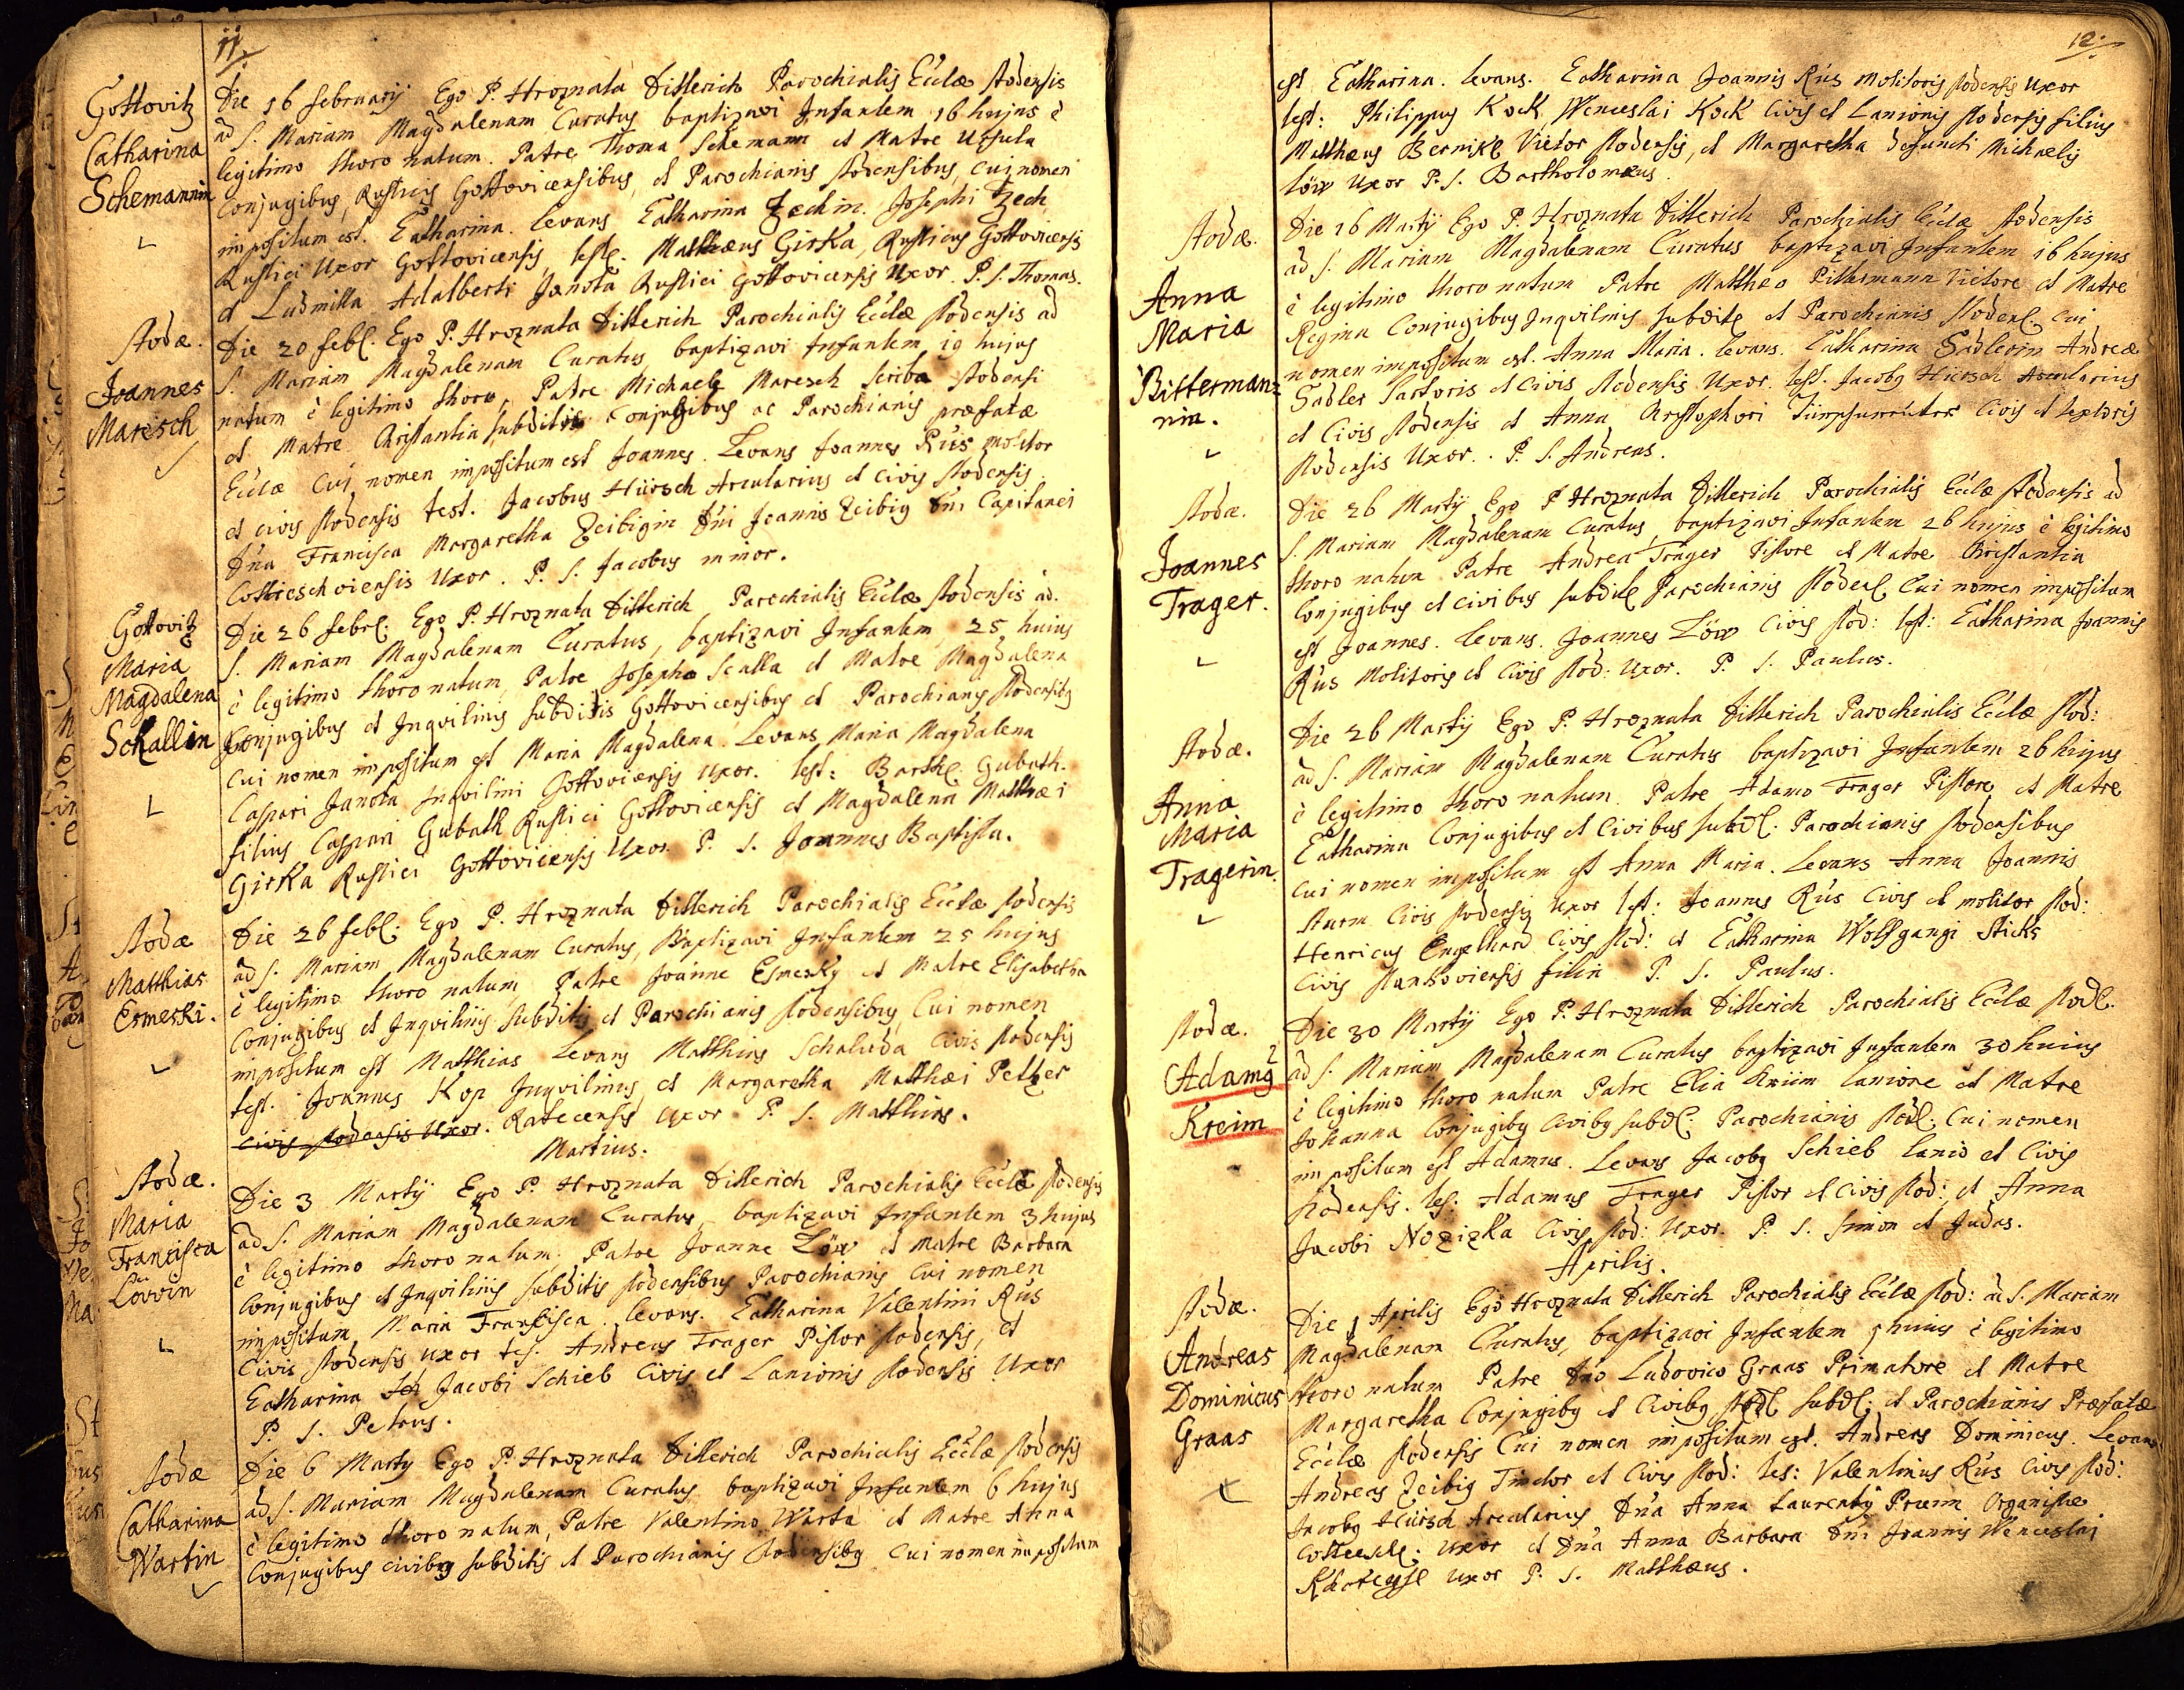 11.
Gottovitz
Catharina
Schemannin
Die 16 februarij Ego P. Hroznata Ditterich Parochialis Eccłæ stodensis
ad S. Mariam Magdalenam Curatus baptizavi Infantem 16 hujus è
legitimo thoro natum. Patre Thoma Schemann et Matre Ursula
Conjugibus, Rusticis Gottovicensibus, et Parochianis stodensibus, cui nomen
impositum est. Catharina. Levans Catharina Zechin. Josephi Zech
Rustici Uxor Gottovicensis, test. Matthæus Girka, Rusticus Gottovicensis
et Ludmilla Adalberti Janota Rustici Gottovicensis Uxor. P. S. Thomas.
Stodæ.
Joannes
Maresch
Die 20 febr. Ego P. Hroznata Ditterich Parochialis Eccłæ stodensis ad
S. Mariam Magdalenam Curatus baptizavi Infantem 19 hujus
natum è legitimo thoro, Patre Michaele Maresch scriba stodensi
et Matre Christantia subditis conjugibus ac Parochianis præfatæ
Eccłæ Cui nomen impositum est Joannes. Levans Joannes Rús molitor
et civis stodensis test. Jacobus Hürsch Arcularius et civis stodensis
Dña Francisca Margaretha Zeibigin Dñi Joannis Zeibig Dñi Capitanei
Cottieschoviensis Uxor. P. S. Jacobus minor.
Gottovitz
Maria
Magdalena
Schallin
Die 26 febr. Ego P. Hroznata Ditterich Parochialis Eccłæ stodensis ad
S. Mariam Magdalenam Curatus, baptizavi Infantem, 25 huius
è legitimo thoro natum, Patre Josepho Scalla et Matre Magdalena
Conjugibus et Inqvilinis subditis Gottovicensibus et Parochianis stodensibus
Cui nomen impositum est Maria Magdalena. Levans Maria Magdalena
Caspari Janota Inqvilini Gottovicensis Uxor. test: Barthl. Gubath.
filius Caspari Gubath Rustici Gottovicensis et Magdalena Matthæi
Girka Rustici Gottovicensis Uxor. P. S. Joannes Baptista.
Stodæ
Matthias
Esmeski.
Die 26 febr. Ego P. Hroznata Ditterich Parochialis Eccłæ stodensis
ad S. Mariam Magdalenam Curatus, Baptizavi Infantem 25 hujus
è legitimo thoro natum, Patre Joanne Esmesky et Matre Elisabetha
Conjugibus et Inqvilinis subditis et Parochianis stodensibus, Cui nomen
impositum est Matthias Levans Matthias Schaluda Civis stodensis
test. Joannes Kop Inqvilinus, et Margaretha Matthæi Peltzer
civis stodensis Uxor. Ratecensis uxor P. S. Matthias.
Martius.
Stodæ.
Maria
Francisca
Lövvin
Die 3 Martij Ego P. Hroznata Ditterich Parochialis Eccłæ stodensis
ad S. Mariam Magdalenam Curatus, baptizavi Infantem 3 hujus
è legitimo thoro natum. Patre Joanne Löw et Matre Barbara
Conjugibus et Inqvilinis subditis stodensibus Parochianis Cui nomen
impositum Maria Francisca. Levans. Catharina Valentini Rús
Civis stodensis uxor tes. Andreas Trager Pistor stodensis, et
Catharina Jacobi Schieb Civis et Lanionis stodensis Uxor
P. S. Petrus.
Stodæ
Catharina
Wartin
Die 6 Marty Ego P. Hroznata Ditterich Parochialis Eccłæ stodensis
ad S. Mariam Magdalenam Curatus baptizavi Infantem 6 hujus
è legitimo thoro natum, Patre Valentino Warta et Matre Anna
Conjugibus civibus subditis et Parochianis stodensibus Cui nomen impositum
12.
est Catharina. levans. Catharina Joannis Rús Molitoris stodensis Uxor
test: Philippus Kock Wenceslai Kock Civis et Lanionis stodensis filius
Matthæus Bernikl Vietor stodensis, et Margaretha defuncti Michaelis
Löw Uxor P. S. Bartholomæus.
Stodæ.
Anna
Maria
Bitterman=
nin.
Die 16 Martij Ego P. Hroznata Ditterich Parochialis Eccłæ stodensis
ad S. Mariam Magdalenam Curatus baptizavi Infantem 16 hujus
è legitimo thoro natum Patre Matthæo Pittermann Vietore et Matre
Regina Conjugibus Inqvilinis subdit. et Parochianis stodens. Cui
nomen impositum est. Anna Maria. levans. Catharina Sadlerin Andreæ
Sadler sartoris et Civis stodensis Uxor. test. Jacobg Hürsch Arcularius
et Civis stodensis et Anna Christophori Civis et textoris
stodensis Uxor. P. S. Andreas.
Stodæ.
Joannes
Trager.
Die 26 Martij Ego P Hroznata Ditterich Parochialis Eccłæ stodensis ad
S. Mariam Magdalenam Curatus, baptizavi Infantem 26 hujus è legitimo
thoro natum Patre Andrea Trager Pistore et Matre Christantia
Conjugibus et Civibus subdit. Parochianis stodens. Cui nomen impositum
est Joannes. levans. Joannes Löw Civis stod: test: Catharina Joannis
Rús Molitoris et Civis stod: Uxor. P. S. Paulus.
Stodæ.
Anna
Maria
Tragerin.
Die 26 Martij Ego P. Hroznata Ditterich Parochialis Eccłæ stod:
ad S. Mariam Magdalenam Curatus baptizavi Infantem 26 hujus
è legitimo thoro natum. Patre Adamo Trager Pistore, et Matre
Catharina Conjugibus et Civibus subd. Parochianis stodensibus
cui nomen impositum est Anna Maria. Levans Anna Joannis
Sturm Civis stodensis Uxor test: Joannes Rús Civis et molitor stod:
Henricus Engelhard Civis stod: et Catharina Wolfgangi Sticks
Civis stankoviensis filia P. S. Paulus.
Stodæ.
Adamg
Kreim
Die 30 Martij Ego P. Hroznata Ditterich Parochialis Eccłæ stod.
ad S. Mariam Magdalenam Curatus baptizavi Infantem 30 huius
è legitimo thoro natum Patre Elia Kriim Lanione et Matre
Johanna Conjugibg Civibg subd. Parochianis stod. Cui nomen
impositum est Adamus. Levans Jacobg Schieb Lanio et Civis
stodensis. tes: Adamus Trager Pistor et Civis stod: et Anna
Jacobi Nozizka Civis stod: Uxor. P. S. Simon et Judas.
Aprilis.
Stodæ.
Andreas
Dominicus
Graas
Die 1 Aprilis Ego Hroznata Ditterich Parochialis Eccłæ stod: ad S. Mariam
Magdalenam Curatus, baptizavi Infantem 1 huius è legitimo
thoro natum Patre Dño Ludovico Graas Primatore et Matre
Margaretha Conjugibg et Civibg stod. subd. et Parochianis Præfatæ
Eccłæ stodensis Cui nomen impositum est. Andreas Dominicus. Levans
Andreas Zeibig Tinctor et Civis stod: tes: Valentinus Rús Civis stod:
Jacobg Hürsch Arcularius Dña Anna Laurentij Prunn Organistæ
Uxor et Dña Anna Barbara Dñi Joannis Wenceslai
uxor P. S. Matthæus.